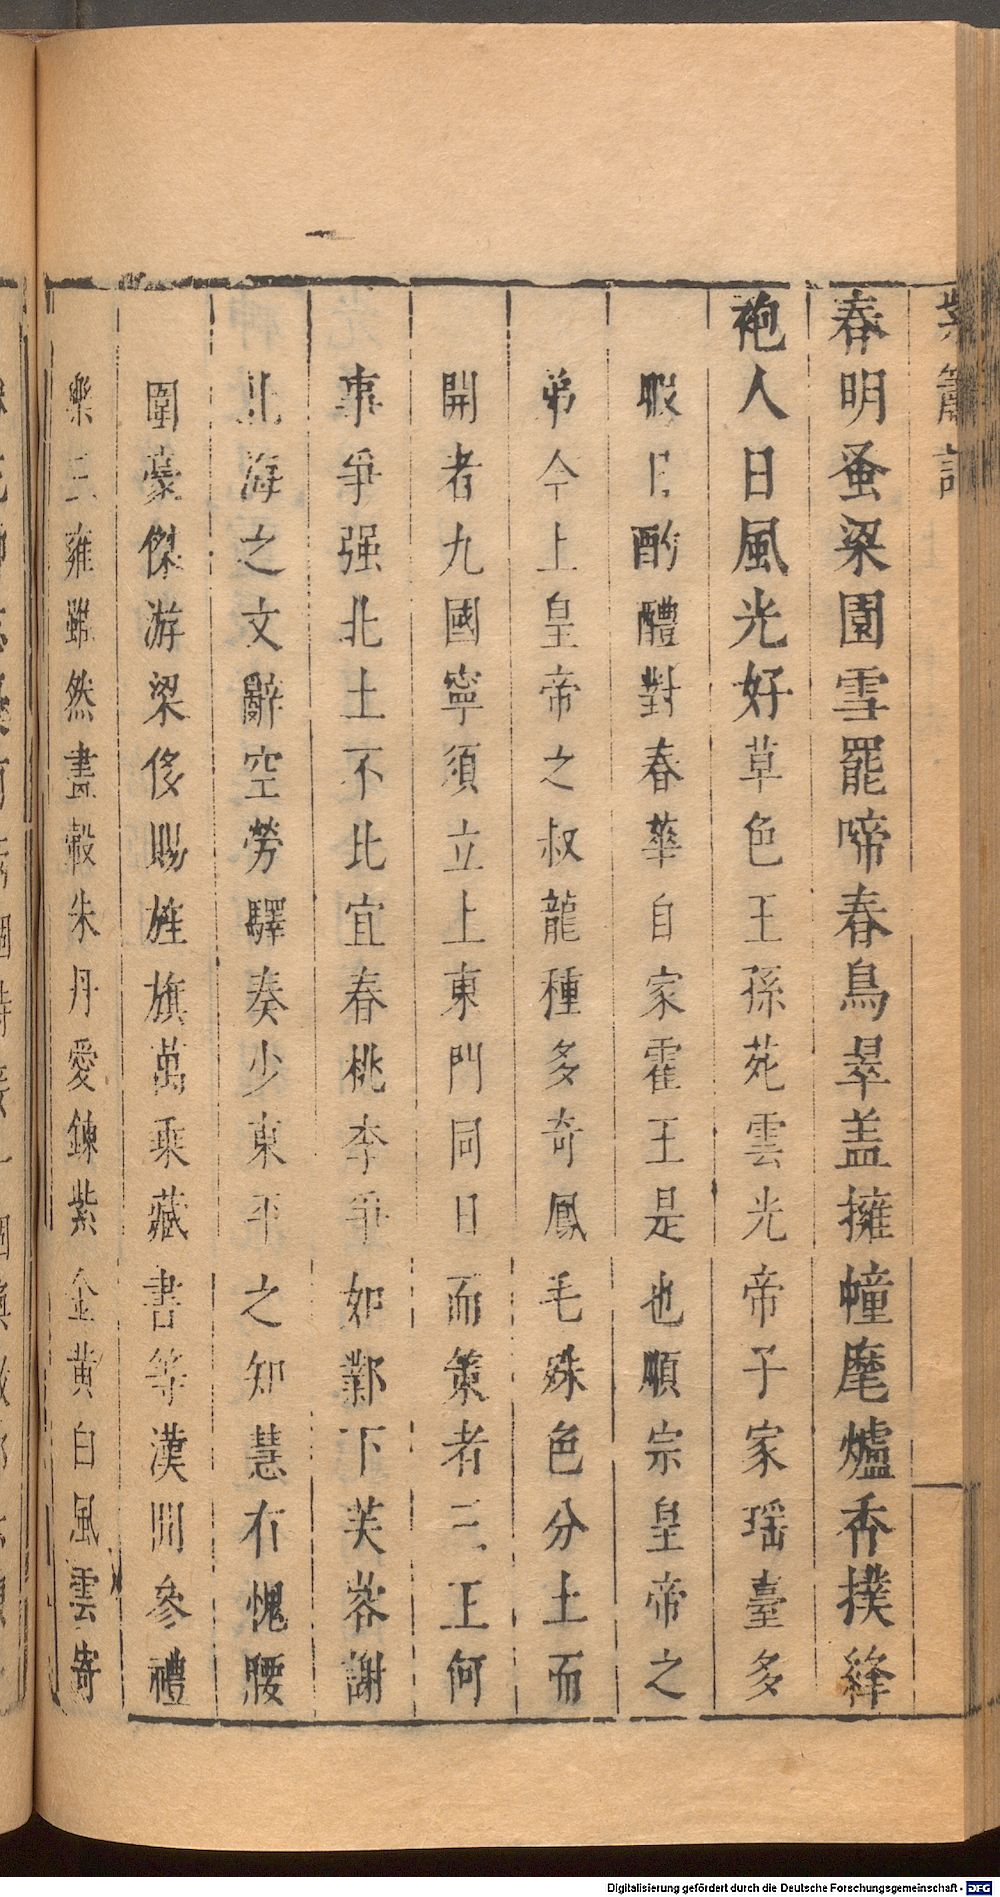 紫簫記
春明蚤梁園雪罷啼春鳥翠盖擁幢麾爐香撲絳
袍人日風光好草色王孫苑雲光帝子家瑶臺多
暇日酌醴對春華自家霍王是也順宗皇帝之
弟今上皇帝之叔龍種多奇鳳毛殊色分土而
開者九國寧須立上東門同日而策者三王何
事爭强北土不比宜春桃李爭如鄴下芙蓉謝
北海之文辭空勞驛奏少東平之知慧有愧腰
圍豪傑游梁侈賜旌旗萬乘藏書等漢間參禮
樂三雍雖然畫轂朱丹愛鍊紫金黄白風雲寄
Digitalisierung gefördert durch die Deutsche Forschungsgemeinschaft - DFG